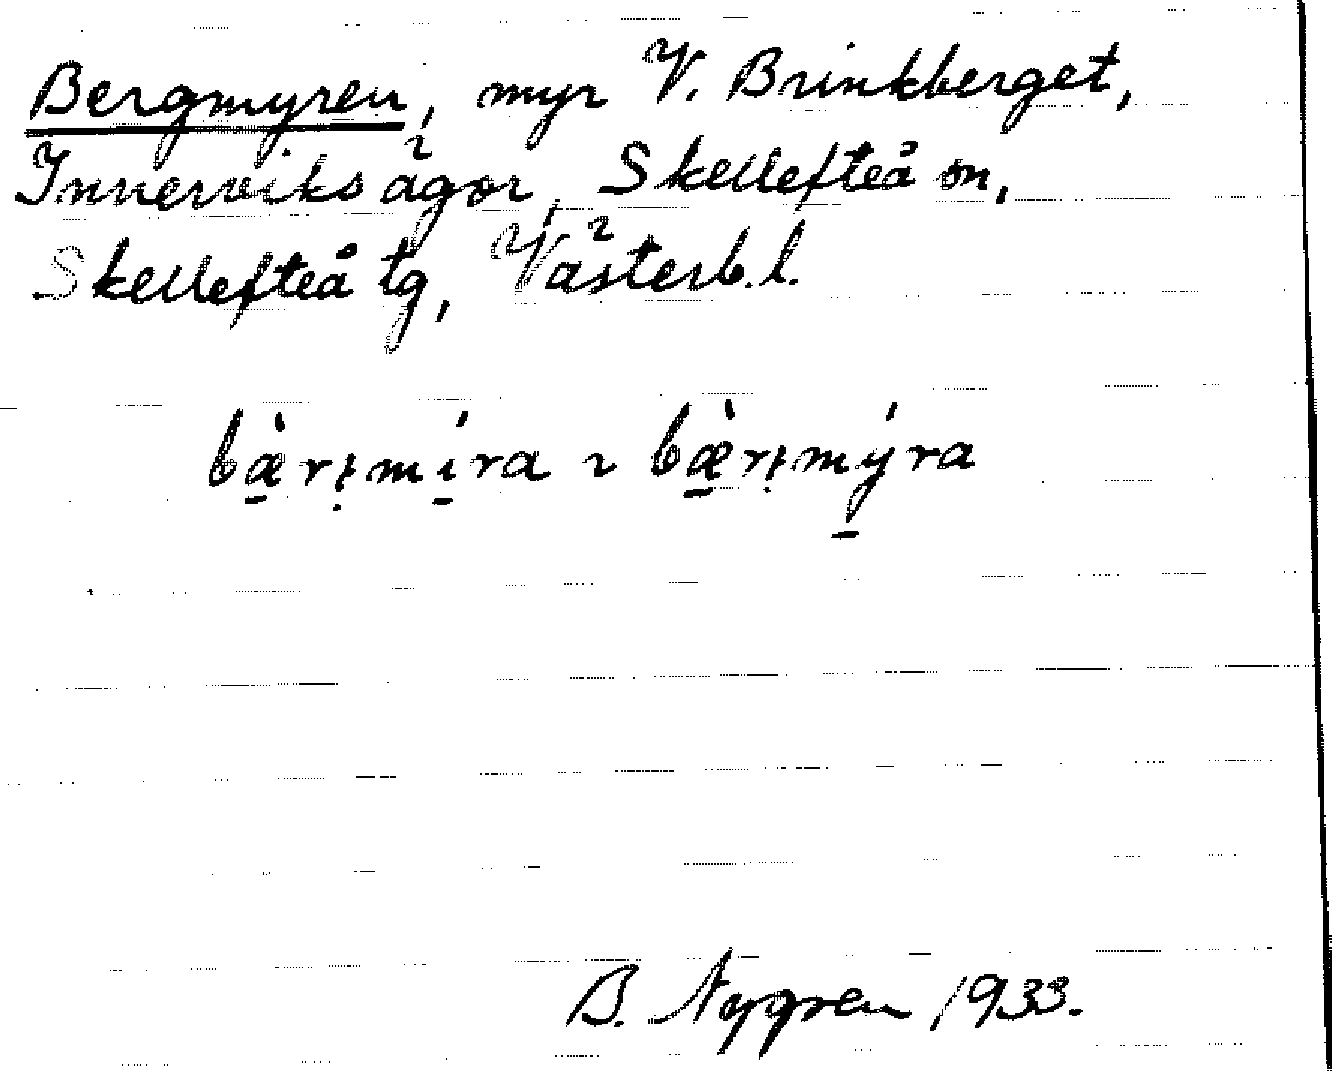 Bergmyren, myr V. Brinkberget,
Innerviks ägor, Skellefteå sn,
Skellefteå tg, Västerb. l.
bæ̠̀rṭmí̠ra ~ bæ̠̀rṭmý̠ra
B. Nygren 1933.